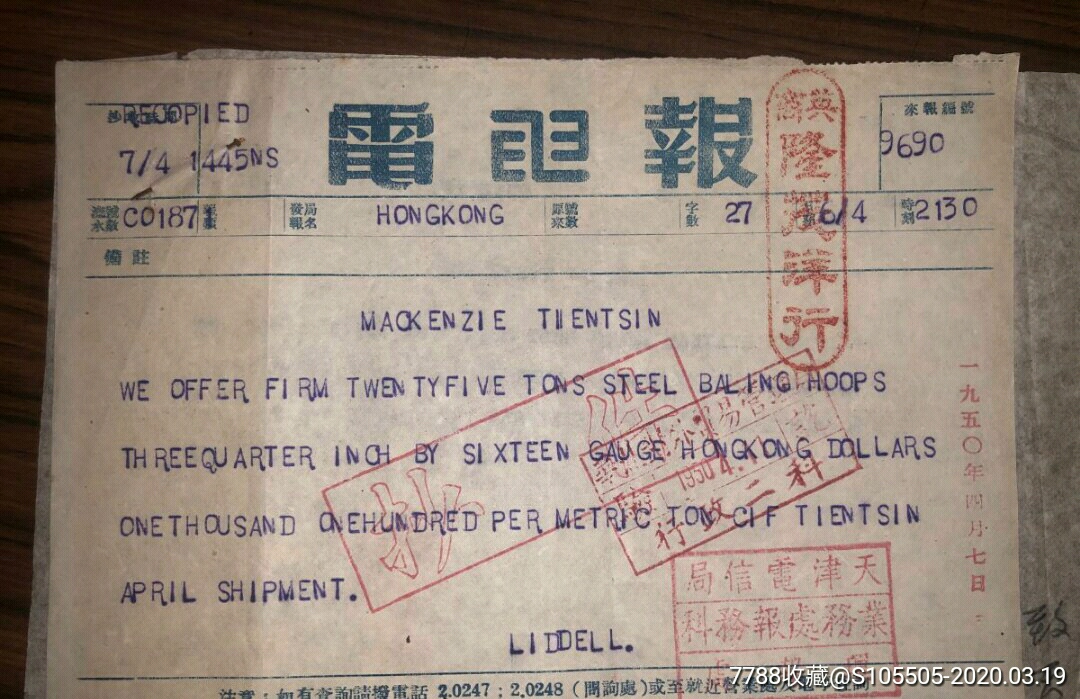 RECOPIED
7/4 1445NS
電 電 報
來報編號
9690
英商
隆茂洋行
C0187
發報局名 HONGKONG
原來號數
字數 27
6/4
時刻 2130
備註
MACKENZIE TIENTSIN
WE OFFER FIRM TWENTYFIVE TONS STEEL BALING HOOPS
THREEQUARTER INCH BY SIXTEEN GAUGE HONGKONG DOLLARS
ONETHOUSAND ONEHUNDRED PER METRIC TON CIF TIENTSIN
APRIL SHIPMENT.
LIDDELL.
一九五〇年四月七日
抄
1950.4.
天津電信局
業務處報務科
注意:如有查詢請撥電話 2.0247;2.0248(問詢處)或至就近營業處
7788收藏@S105505-2020.03.19